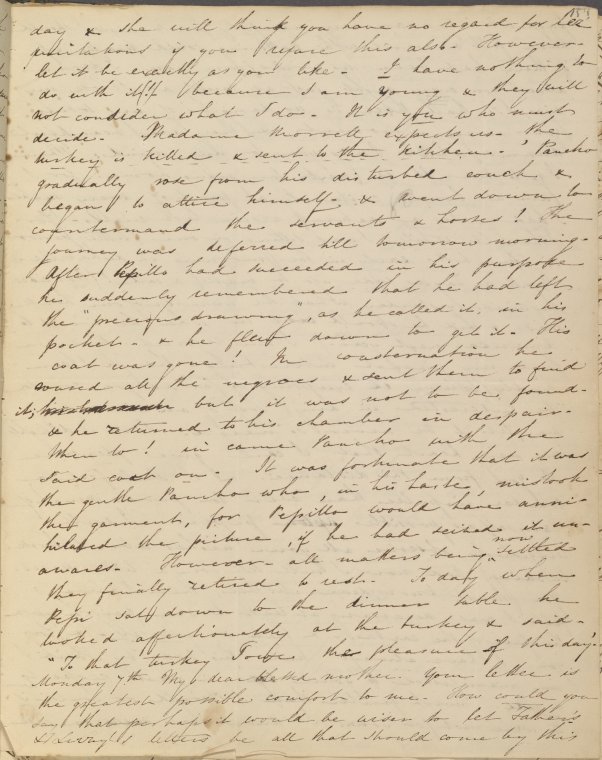 153
day & she will think you have no regard for her
invitations if you refuse this also. However -
let it be exactly as you like - I have nothing to
do with it!! because I am young & they will
not consider what I do - It is you who must
decide. Madame Morrell expects us - the
turkey is killed & sent to the kitchen - ' Pancho
gradually rose from his disturbed couch &
began to attire himself - & went down to
countermand the servants & horses! The
journey was deferred till tomorrow morning -
After Pepillo had succeeded in his purpose
he suddenly remembered that he had left
the "precious drawing", as he called it, in his
pocket - & he flew down to get it - His
coat was gone! In consternation he
roused all the negroes & sent them to find
it; but it was not to be found -
& he returned to his chamber in despair -
When lo! in came Pancho with the
said coat on - It was fortunate that it was
the gentle Pancho who, in his haste, mistook
the garment, for Pepillo would have anni-
hilated the picture, if he had seized it un-
awares - However - all matters being now settled
they finally retired to rest - To day when
Pepi sat down to the dinner table he
looked affectionately at the turkey & said -
"To that turkey I owe the pleasure of this day'.
Monday 7th My dear mother. Your letter is
the greatest possible comfort to me. How could you
say that perhaps it would be wiser to let Father's
& letters be all that should come by this